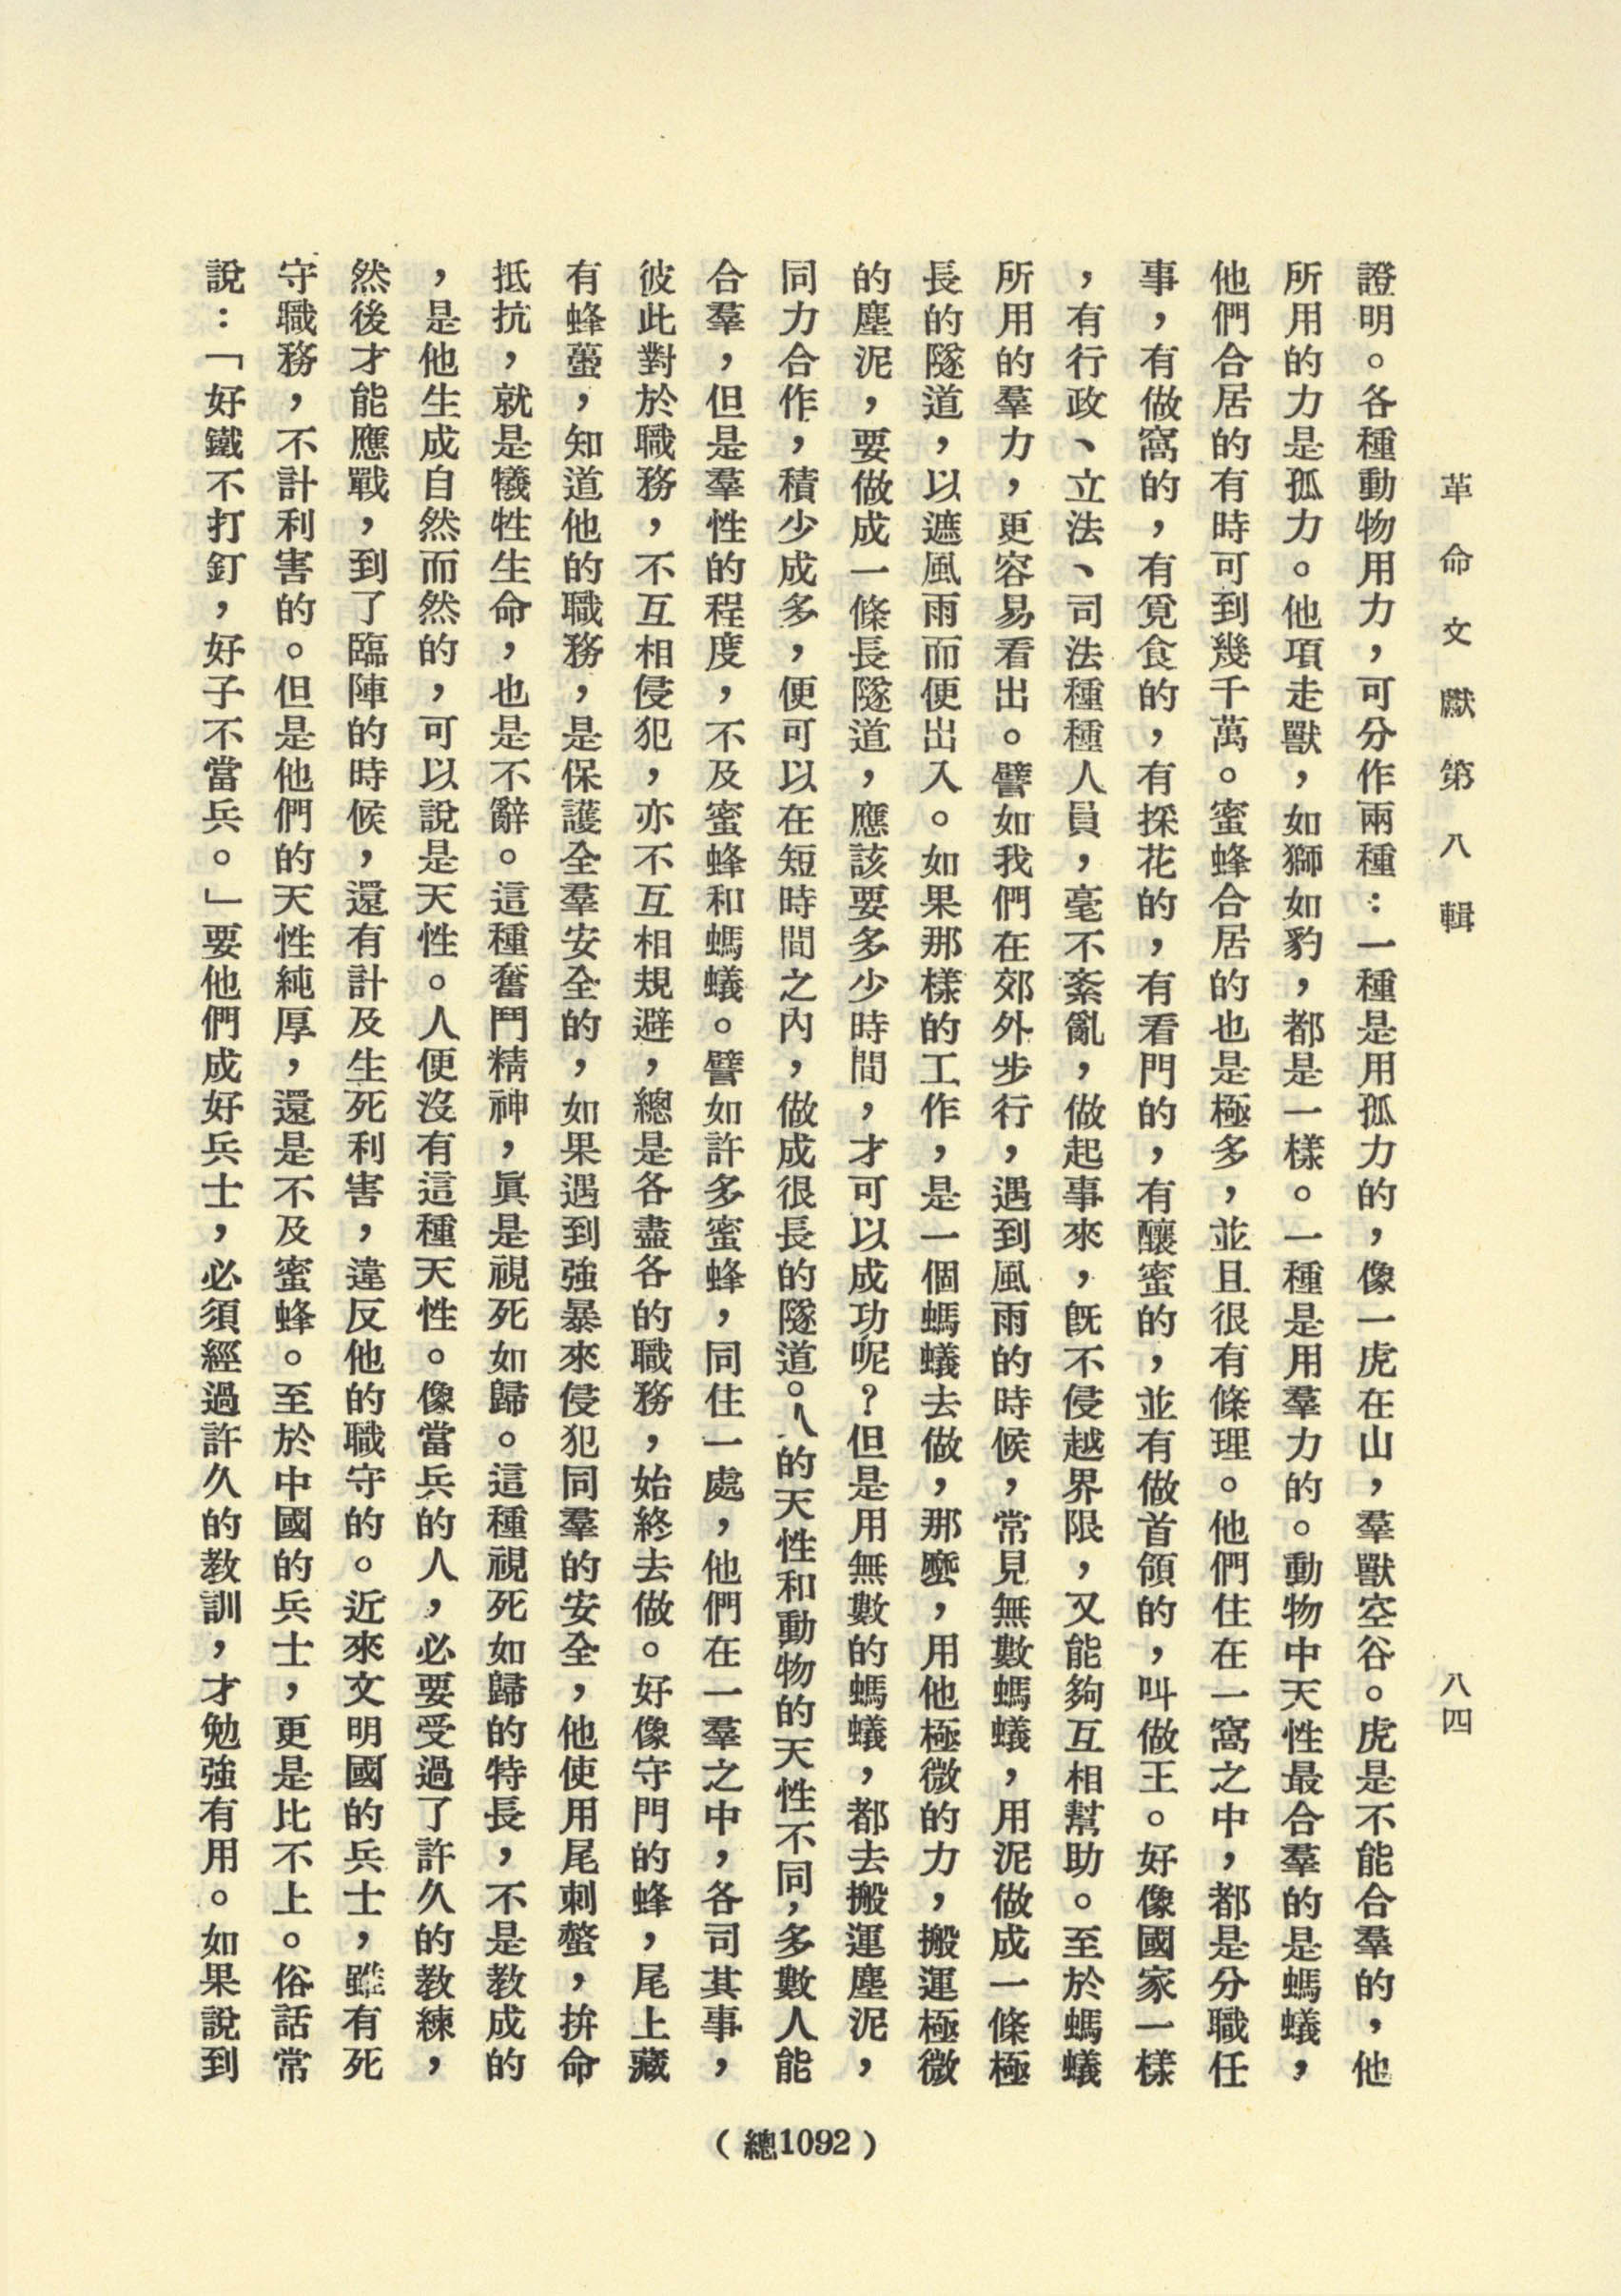 革命文獻第八輯
八四
證明。各種動物用力，可分作兩種：一種是用孤力的，像一虎在山，羣獸空谷。虎是不能合羣的，他
所用的力是孤力。他項走獸，如獅如豹，都是一樣。一種是用羣力的。動物中天性最合羣的是螞蟻，
他們合居的有時可到幾千萬。蜜蜂合居的也是極多，並且很有條理。他們住在一窩之中，都是分職任
事，有做窩的，有覓食的，有採花的，有看門的，有釀蜜的，並有做首領的，叫做王。好像國家一樣
，有行政、立法、司法種種人員，毫不紊亂，做起事來，既不侵越界限，又能夠互相幫助。至於螞蟻
所用的羣力，更容易看出。譬如我們在郊外步行，遇到風雨的時候，常見無數螞蟻，用泥做成一條極
長的隧道，以遮風雨而便出入。如果那樣的工作，是一個螞蟻去做，那麼，用他極微的力，搬運極微
的塵泥，要做成一條長隧道，應該要多少時間，才可以成功呢？但是用無數的螞蟻，都去搬運塵泥，
同力合作，積少成多，便可以在短時間之內，做成很長的隧道。人的天性和動物的天性不同，多數人能
合羣，但是羣性的程度，不及蜜蜂和螞蟻。譬如許多蜜蜂，同住一處，他們在一羣之中，各司其事，
彼此對於職務，不互相侵犯，亦不互相規避，總是各盡各的職務，始終去做。好像守門的蜂，尾上藏
有蜂蠆，知道他的職務，是保護全羣安全的，如果遇到強暴來侵犯同羣的安全，他使用尾刺螫，拚命
抵抗，就是犧牲生命，也是不辭。這種奮鬥精神，眞是視死如歸。這種視死如歸的特長，不是教成的
，是他生成自然而然的，可以說是天性。人便沒有這種天性。像當兵的人，必要受過了許久的教練，
然後才能應戰，到了臨陣的時候，還有計及生死利害，違反他的職守的。近來文明國的兵士，雖有死
守職務，不計利害的。但是他們的天性純厚，還是不及蜜蜂。至於中國的兵士，更是比不上。俗話常
說：「好鐵不打釘，好子不當兵。」要他們成好兵士，必須經過許久的教訓，才勉強有用。如果說到
（總1092）